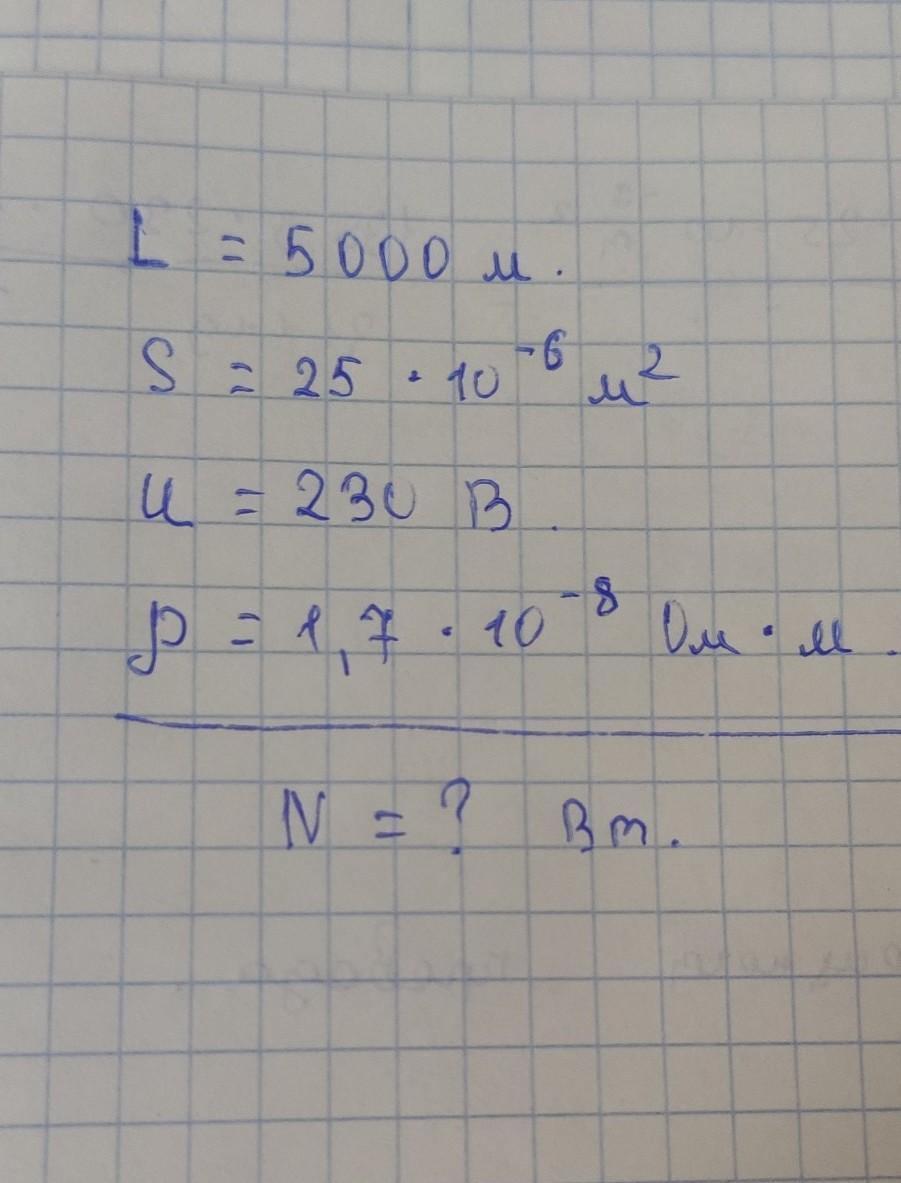 L = 5000 м.
S = 25 · 10⁻⁶ м²
U = 230 В.
ρ = 1,7 · 10⁻⁸ Ом · м.
N = ? Вт.